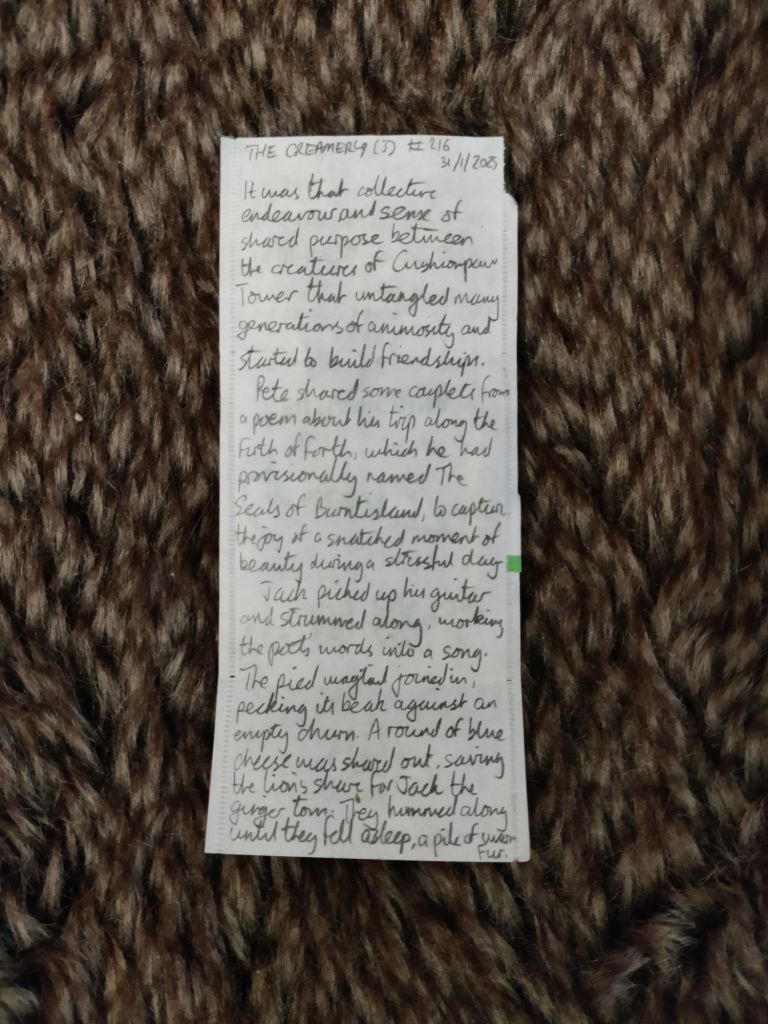 THE CREAMERY (3) # 216
31/1/2025
It was that collective
endeavour and sense of
shared purpose between
the creatures of Cushionpaw
Tower that untangled many
generations of animosity and
started to build friendships.
Pete shared some couplets from
a poem about his trip along the
Firth of Forth, which he had
provisionally named The
Seals of Burntisland, to capture
the joy of a snatched moment of
beauty during a stressful day
Jack picked up his guitar
and strummed along, working
the poet's words into a song.
The pied wagtail joined in,
pecking its beak against an
empty churn. A round of blue
cheese was shared out, saving
the lion's share for Jack the
ginger tom. They hummed along
until they fell asleep, a pile of warm
fur.